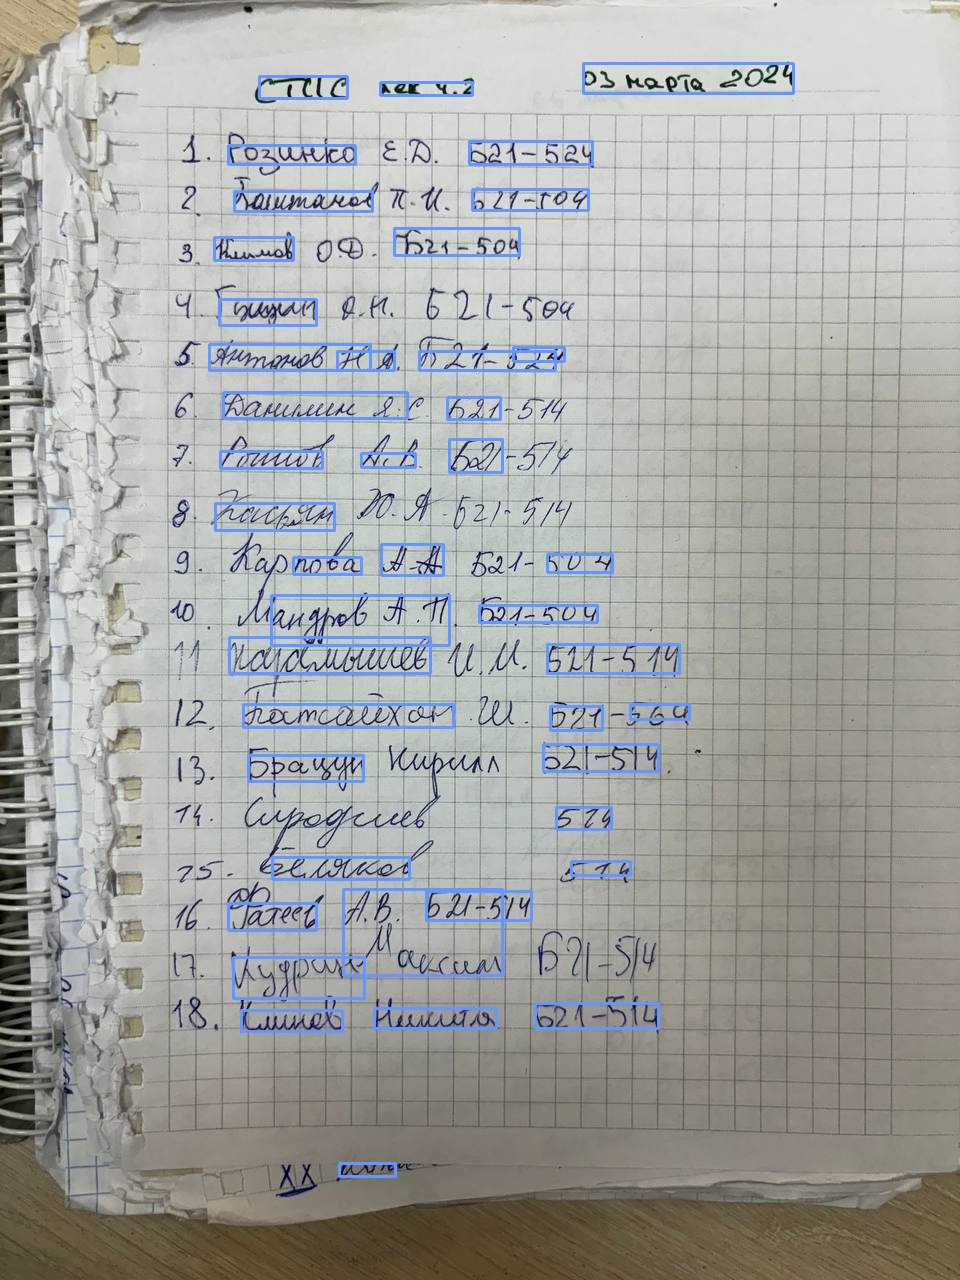 СТПС лек ч.2 03 марта 2024
1. Розинко Е.Д. Б21-524
2. Баштанов П.И. Б21-504
3. Климов О.Ф. Б21-504
4. О.Н. Б21-504
5. Антонов Н А. Б21-524
6. Данилин Я.С. Б21-514
7. А.В. Б21-514
8. Касьян Ю.А. Б21-514
9. Карпова А-А Б21-504
10. Мандров А.П. Б21-504
11 Карамышев И.М. Б21-514
12. Батсайхан Ш. Б21-564
13. Брацун Кирилл Б21-514.
14. 524
15. Беляков 514
16. А.В. Б21-514
17. Кудрин Максим Б21-514
18. Климов Никита Б21-514
XX